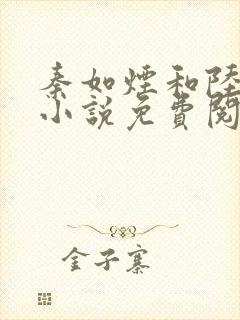 秦如煙和陸
小說免費閱
金子寨